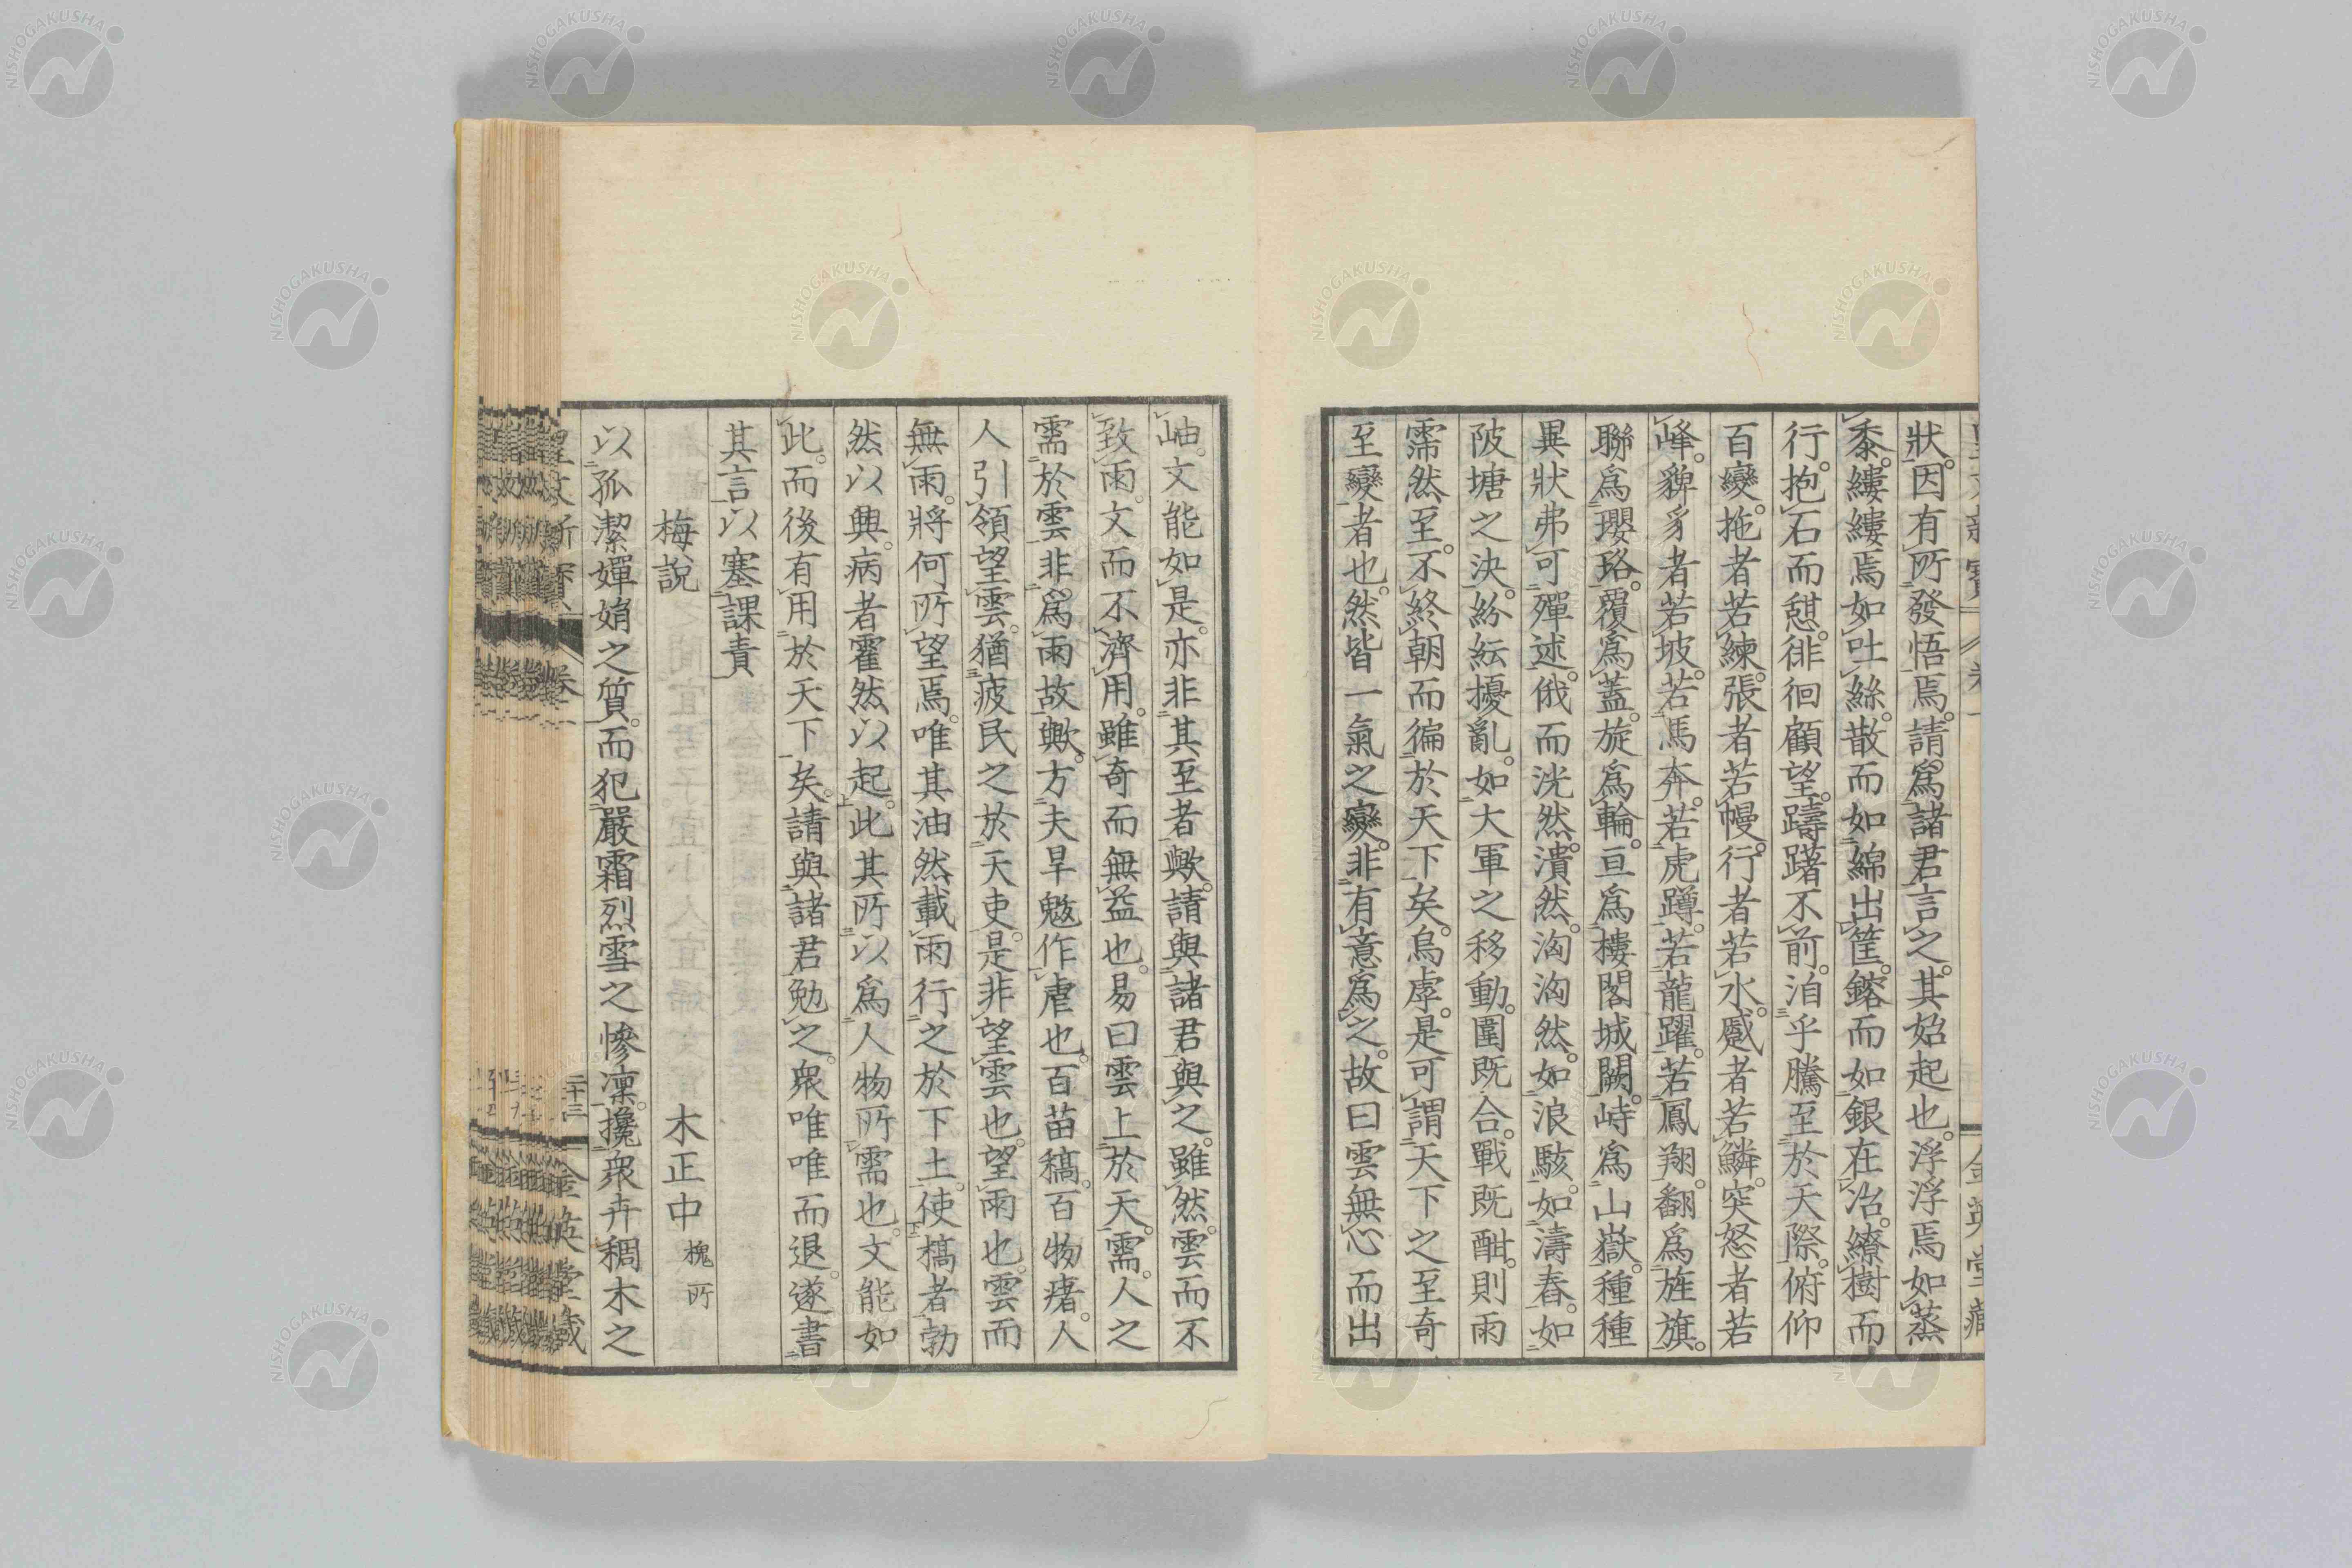 狀。因有所發悟焉。請爲諸君言之。其始起也。浮浮焉如蒸
黍。縷縷焉如吐絲。散而如綿出筐。鎔而如銀在冶。繚樹而
行。抱石而憇。徘徊顧望。躊躇不前。洎乎騰至於天際。俯仰
百變。拖者若練。張者若幔。行者若水。蹙者若鱗。突怒者若
峰。貔豸者若坡。若馬奔。若虎蹲。若龍躍。若鳳翔。翻爲旌旗。
聯爲瓔珞。覆爲蓋。旋爲輪。亘爲樓閣城闕。峙爲山嶽。種種
異狀弗可殫述。俄而洸然。潰然。洶洶然。如浪駭。如濤舂。如
陂塘之決。紛紜擾亂。如大軍之移動。圍既合。戰既酣。則雨
霈然至。不終朝而徧於天下矣。烏虖。是可謂天下之至奇
至變者也。然皆一氣之變。非有意爲之。故曰雲無心而出
岫。文能如是。亦非其至者歟。請與諸君與之。雖然。雲而不
致雨。文而不濟用。雖奇而無益也。易曰雲上於天。需。人之
需於雲。非爲雨故歟。方夫旱魃作虐也。百苗稿。百物瘏。人
人引領望雲。猶疲民之於天吏。是非望雲也。望雨也。雲而
無雨。將何所望焉。唯其油然載雨行之於下土。使槁者勃
然以興。病者霍然以起。此其所以爲人物所需也。文能如
此。而後有用於天下矣。請與諸君勉之。衆唯唯而退。遂書
其言以塞課責
梅說
木正中 槐所
以孤潔嬋娟之質。而犯嚴霜烈雪之慘凜。攙衆卉稠木之
二十三